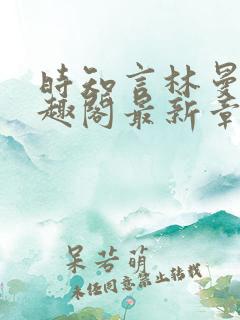 时知言林曼
趣阁最新章
呆若萌
未经同意禁止转载